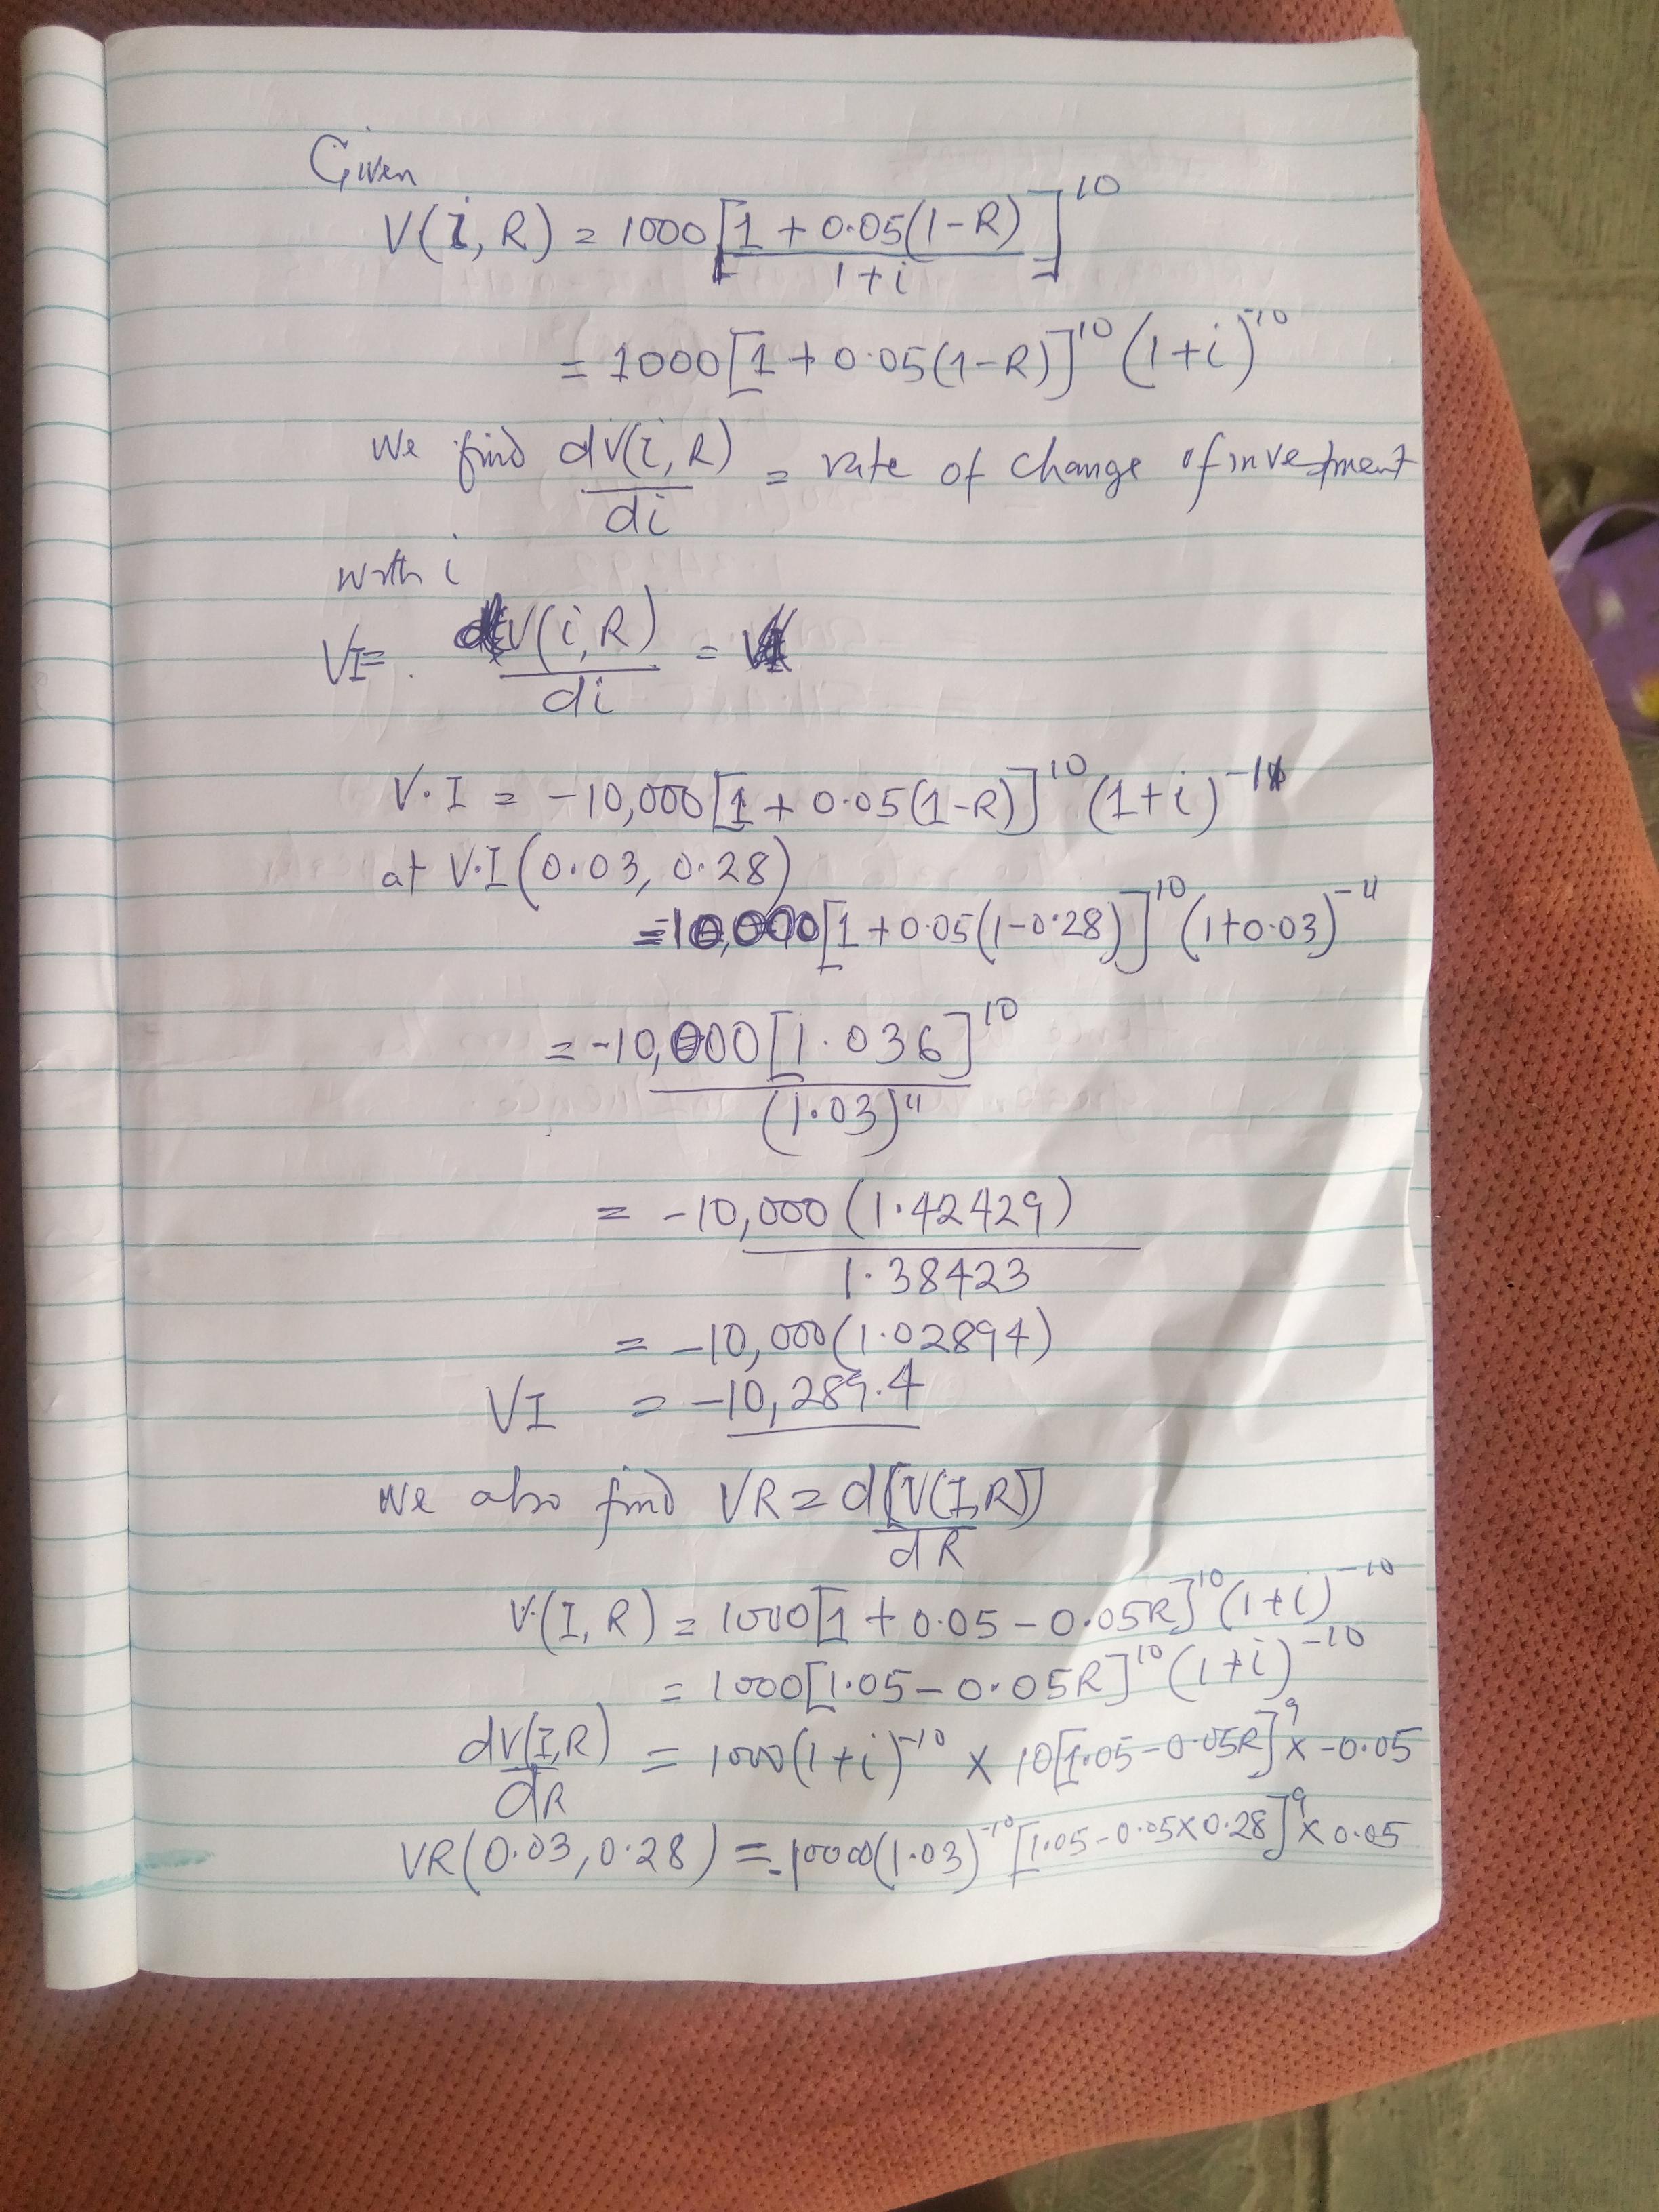 Given
V(i, R) = 1000 [1 + 0.05(1-R) / 1+i]^10
= 1000[1 + 0.05(1-R)]^10 (1+i)^-10
We find dV(i, R)/di = rate of change of investment
with i
VI = V(i, R)/di =
V.I = -10,000[1 + 0.05(1-R)]^10 (1+i)^-11
at V.I(0.03, 0.28)
=-10,000[1 + 0.05(1-0.28)]^10 (1+0.03)^-11
= -10,000[1.036]^10 / (1.03)^11
= -10,000(1.42429) / 1.38423
= -10,000(1.02894)
VI = -10,289.4
We also find VR = d[V(I,R)]/dR
V.(I, R) = 1000[1 + 0.05 - 0.05R]^10 (1+i)^-10
= 1000[1.05 - 0.05R]^10 (1+i)^-10
dV(I,R)/dR = 1000(1+i)^-10 × 10[1.05 - 0.05R]^9 × -0.05
VR(0.03, 0.28) = -10000(1.03)^-10 [1.05 - 0.05×0.28]^9 × 0.05